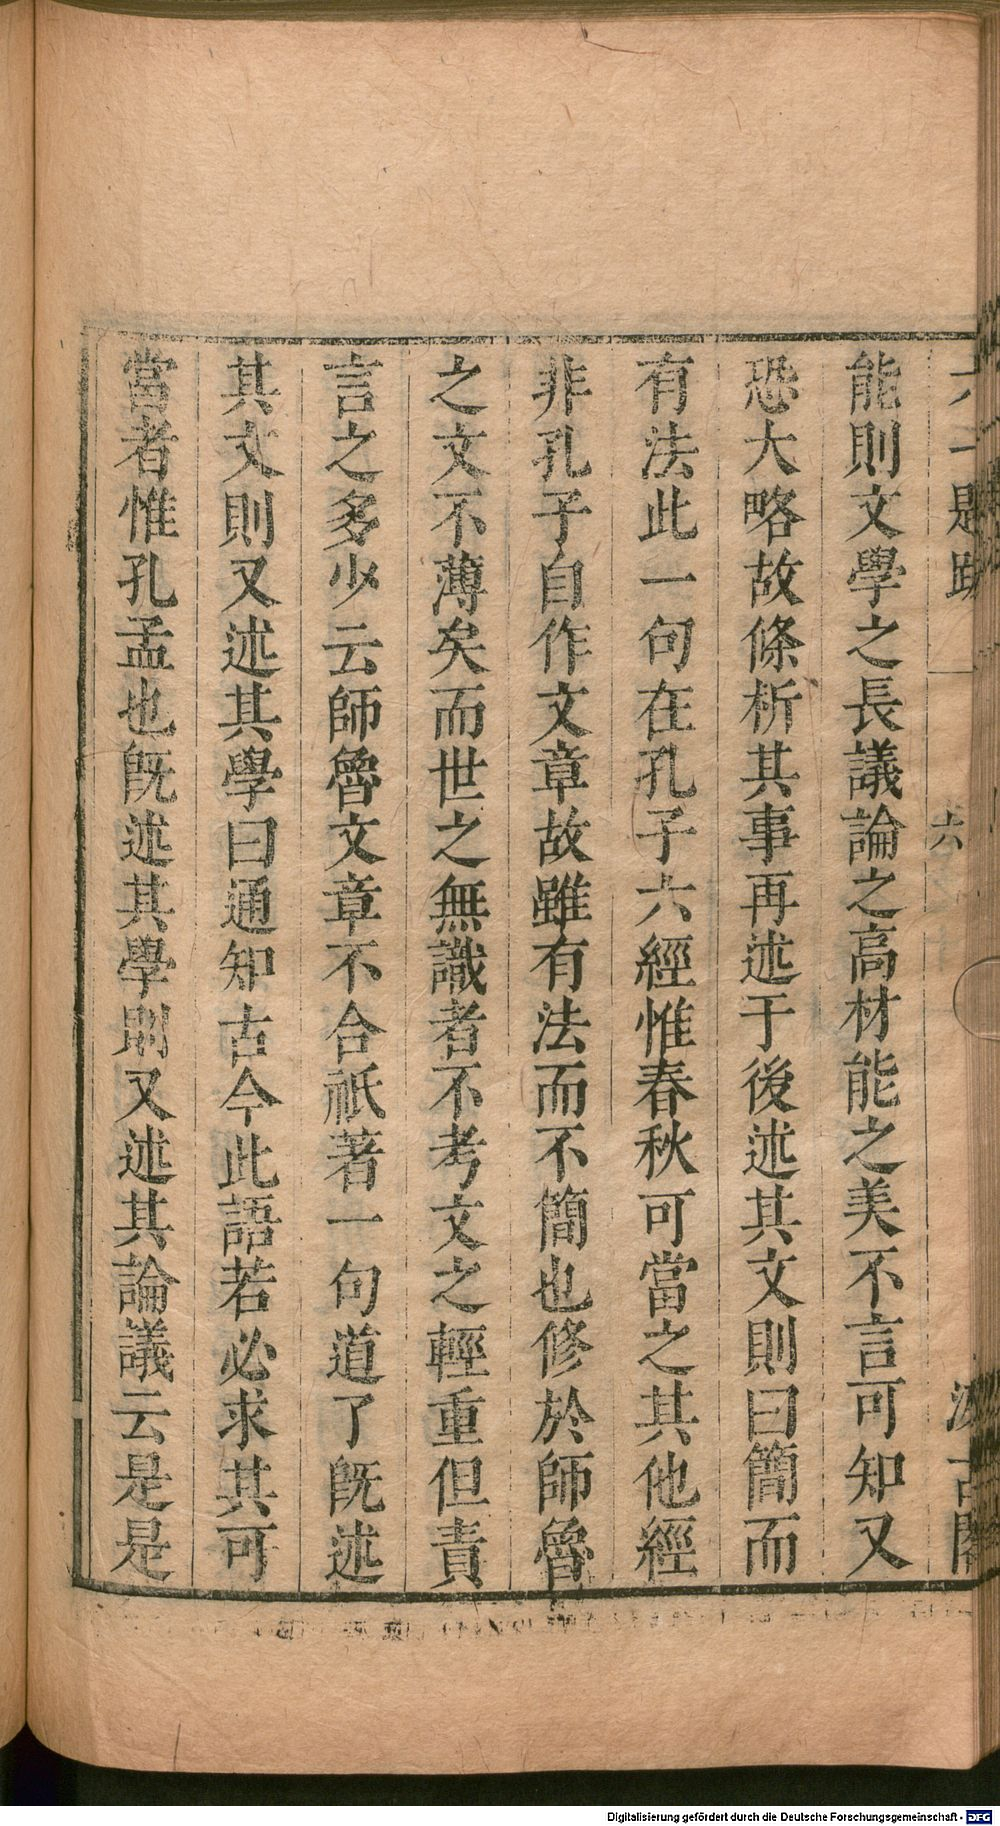 六一題跋 六 汲古閣
能則文學之長議論之高材能之美不言可知又
恐大略故條析其事再述于後述其文則曰簡而
有法此一句在孔子六經惟春秋可當之其他經
非孔子自作文章故雖有法而不簡也修於師魯
之文不薄矣而世之無識者不考文之輕重但責
言之多少云師魯文章不合祇著一句道了旣述
其文則又述其學曰通知古今此語若必求其可
當者惟孔孟也旣述其學則又述其論議云是是
Digitalisierung gefördert durch die Deutsche Forschungsgemeinschaft - DFG